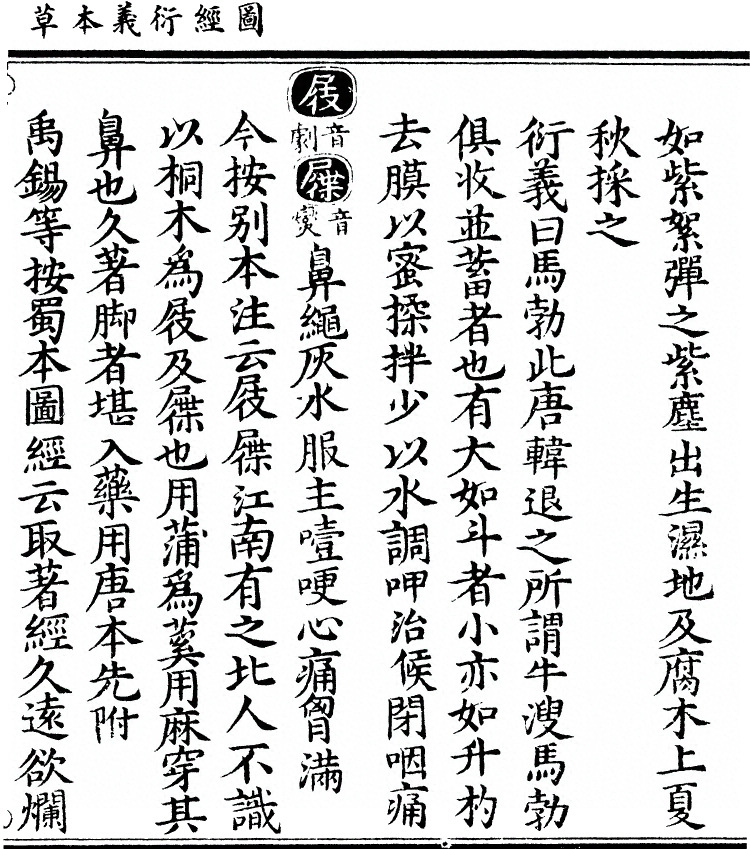 圖經衍義本草
如紫絮彈之紫塵出生濕地及腐木上夏
秋採之
衍義曰馬勃此唐韓退之所謂牛溲馬勃
俱收並蓄者也有大如斗者小亦如升杓
去膜以蜜揉拌少以水調呷治候閉咽痛
屐音劇屧音燮鼻繩灰水服主噎哽心痛胷滿
今按别本注云屐屧江南有之北人不識
以桐木爲屐及屧也用蒲爲用麻穿其
鼻也久著脚者堪入藥用唐本先附
禹錫等按蜀本圖經云取著經久遠欲爛